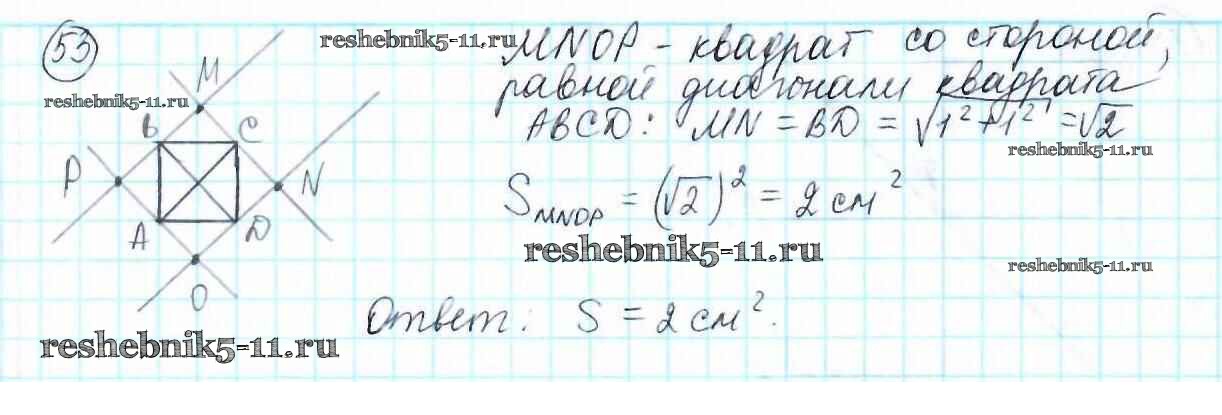 53
reshebnik5-11.ru
MNOP - квадрат со стороной,
равной диагонали квадрата
ABCD: MN = BD = √1²+1² = √2
reshebnik5-11.ru
reshebnik5-11.ru
M
B
C
P
N
A
D
O
S MNOP = (√2)² = 2 см²
reshebnik5-11.ru
reshebnik5-11.ru
Ответ: S = 2 см².
reshebnik5-11.ru